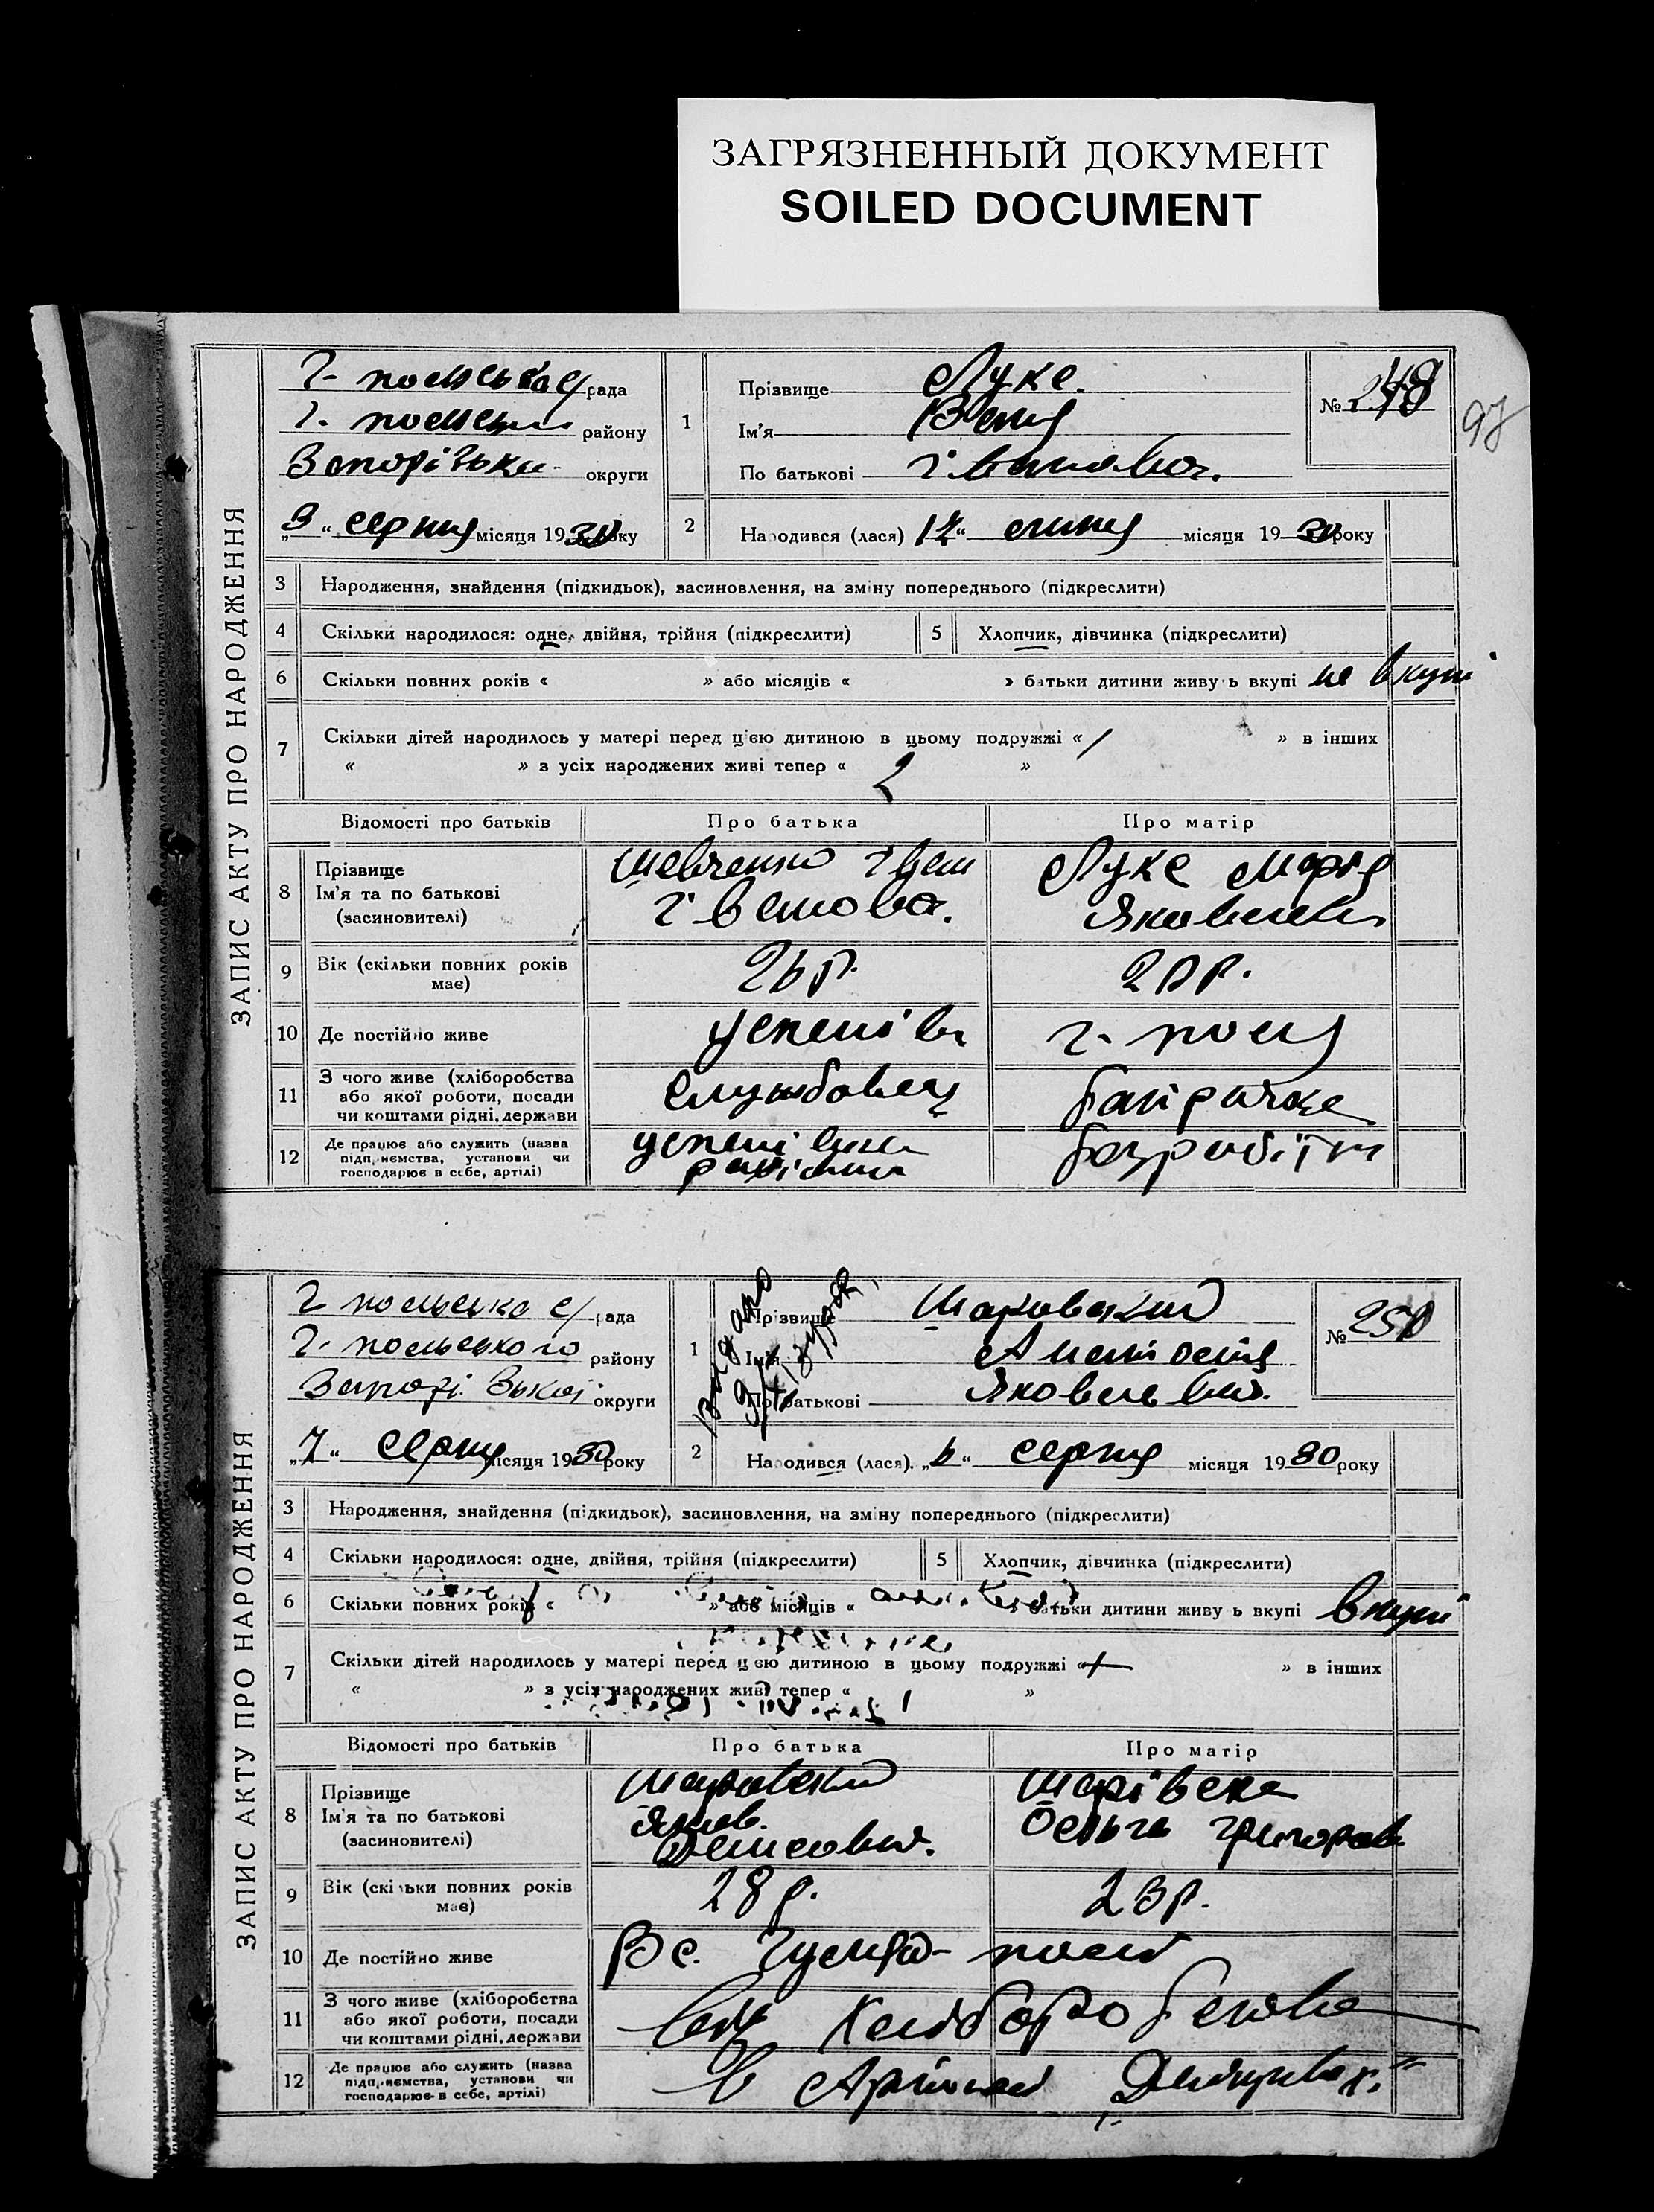 ЗАГРЯЗНЕННЫЙ ДОКУМЕНТ
SOILED DOCUMENT
97
ЗАПИС АКТУ ПРО НАРОДЖЕННЯ
Г- польська с/рада
Г. польськ району
Запорізьки- округи
„9“ серпня місяця 1930 року
1 Прізвище Луке.
Ім'я
По батькові Іванович.
№ 249
2 Народився (лася) 17“ липня місяця 1930 року
3 Народження, знайдення (підкидьок), засиновлення, на зміну попереднього (підкреслити)
4 Скільки народилося: одне, двійня, трійня (підкреслити) 5 Хлопчик, дівчинка (підкреслити)
6 Скільки повних років « » або місяців « » батьки дитини живуть вкупі не вкупі
7 Скільки дітей народилось у матері перед цією дитиною в цьому подружжі « 1 » в інших
« » з усіх народжених живі тепер « 2 »
Відомості про батьків Про батька Про матір
8 Прізвище Ім'я та по батькові (засиновителі) Шевченко Іван Іванова. Луке Марія Яковлевн
9 Вік (скільки повних років має) 26 р. 20 р.
10 Де постійно живе Успенівк Г- поля
11 З чого живе (хліборобства або якої роботи, посади чи коштами рідні, держави Службовець батрачка
12 Де працює або служить (назва підприємства, установи чи господарює в себе, артілі) успенівська безробітн
ЗАПИС АКТУ ПРО НАРОДЖЕННЯ
Г польська с/рада
Г. польського району
Запорізької округи
„7“ серпня місяця 1930 року
Видано
1 Прізвище Шаровский
Ім'я
По батькові Яковлевич.
№ 250
2 Народився (лася). „6“ серпня місяця 1930 року
3 Народження, знайдення (підкидьок), засиновлення, на зміну попереднього (підкреслити)
4 Скільки народилося: одне, двійня, трійня (підкреслити) 5 Хлопчик, дівчинка (підкреслити)
6 Скільки повних років « » або місяців « » батьки дитини живуть вкупі вкупі
7 Скільки дітей народилось у матері перед цією дитиною в цьому подружжі « » в інших
« » з усіх народжених живі тепер « 1 »
Відомості про батьків Про батька Про матір
8 Прізвище Ім'я та по батькові (засиновителі) Шаровский Яков. Денисович. Шарівска Ольга Григоров
9 Вік (скільки повних років має) 28 р. 23 р.
10 Де постійно живе В с. Гуляй- полі
11 З чого живе (хліборобства або якої роботи, посади чи коштами рідні, держави Хліборобства
12 Де працює або служить (назва підприємства, установи чи господарює в себе, артілі) в Артілі